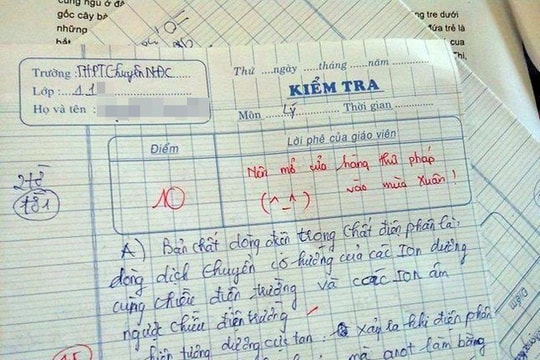 cũng ngụ ở đ
gốc cây b
những
tre dưới
đứa trẻ là
của
Trường : THPT Chuyên NĐC
Lớp : 11
Họ và tên :
Thứ ....ngày ......tháng .....năm
KIỂM TRA
Môn Lý Thời gian
Điểm
Lời phê của giáo viên
10
Nên mở cửa hàng thư pháp
(^_^) vào mùa xuân !
A) Bản chất dòng điện trong chất điện phân là:
dòng dịch chuyển có hướng của các ION dương
cùng chiều điện trường và các ION âm
ngược chiều điện trường
hiện tượng dương cực tan : xảy ra khi điện phân
mà anot làm bằng
Điểm